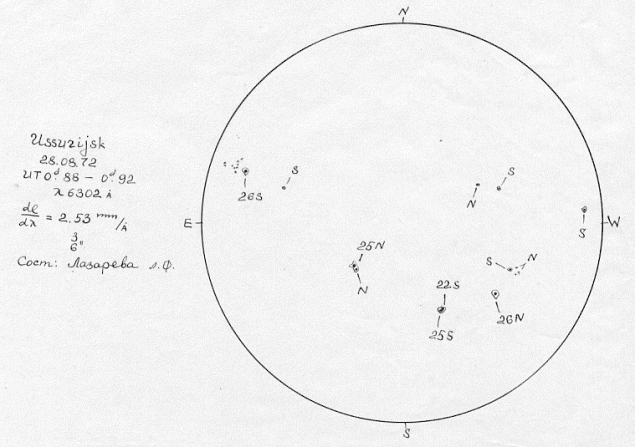 N
Ussurijsk
28.08.72
UT 0ᵈ 88 – 0ᵈ. 92
λ 6302 Å
dl/dλ = 2.53 mm/Å
3
6"
Сост: Лазарева Л.Ф.
S
26S
S
N
E
W
S
25N
N
S
N
22S
25S
26N
S